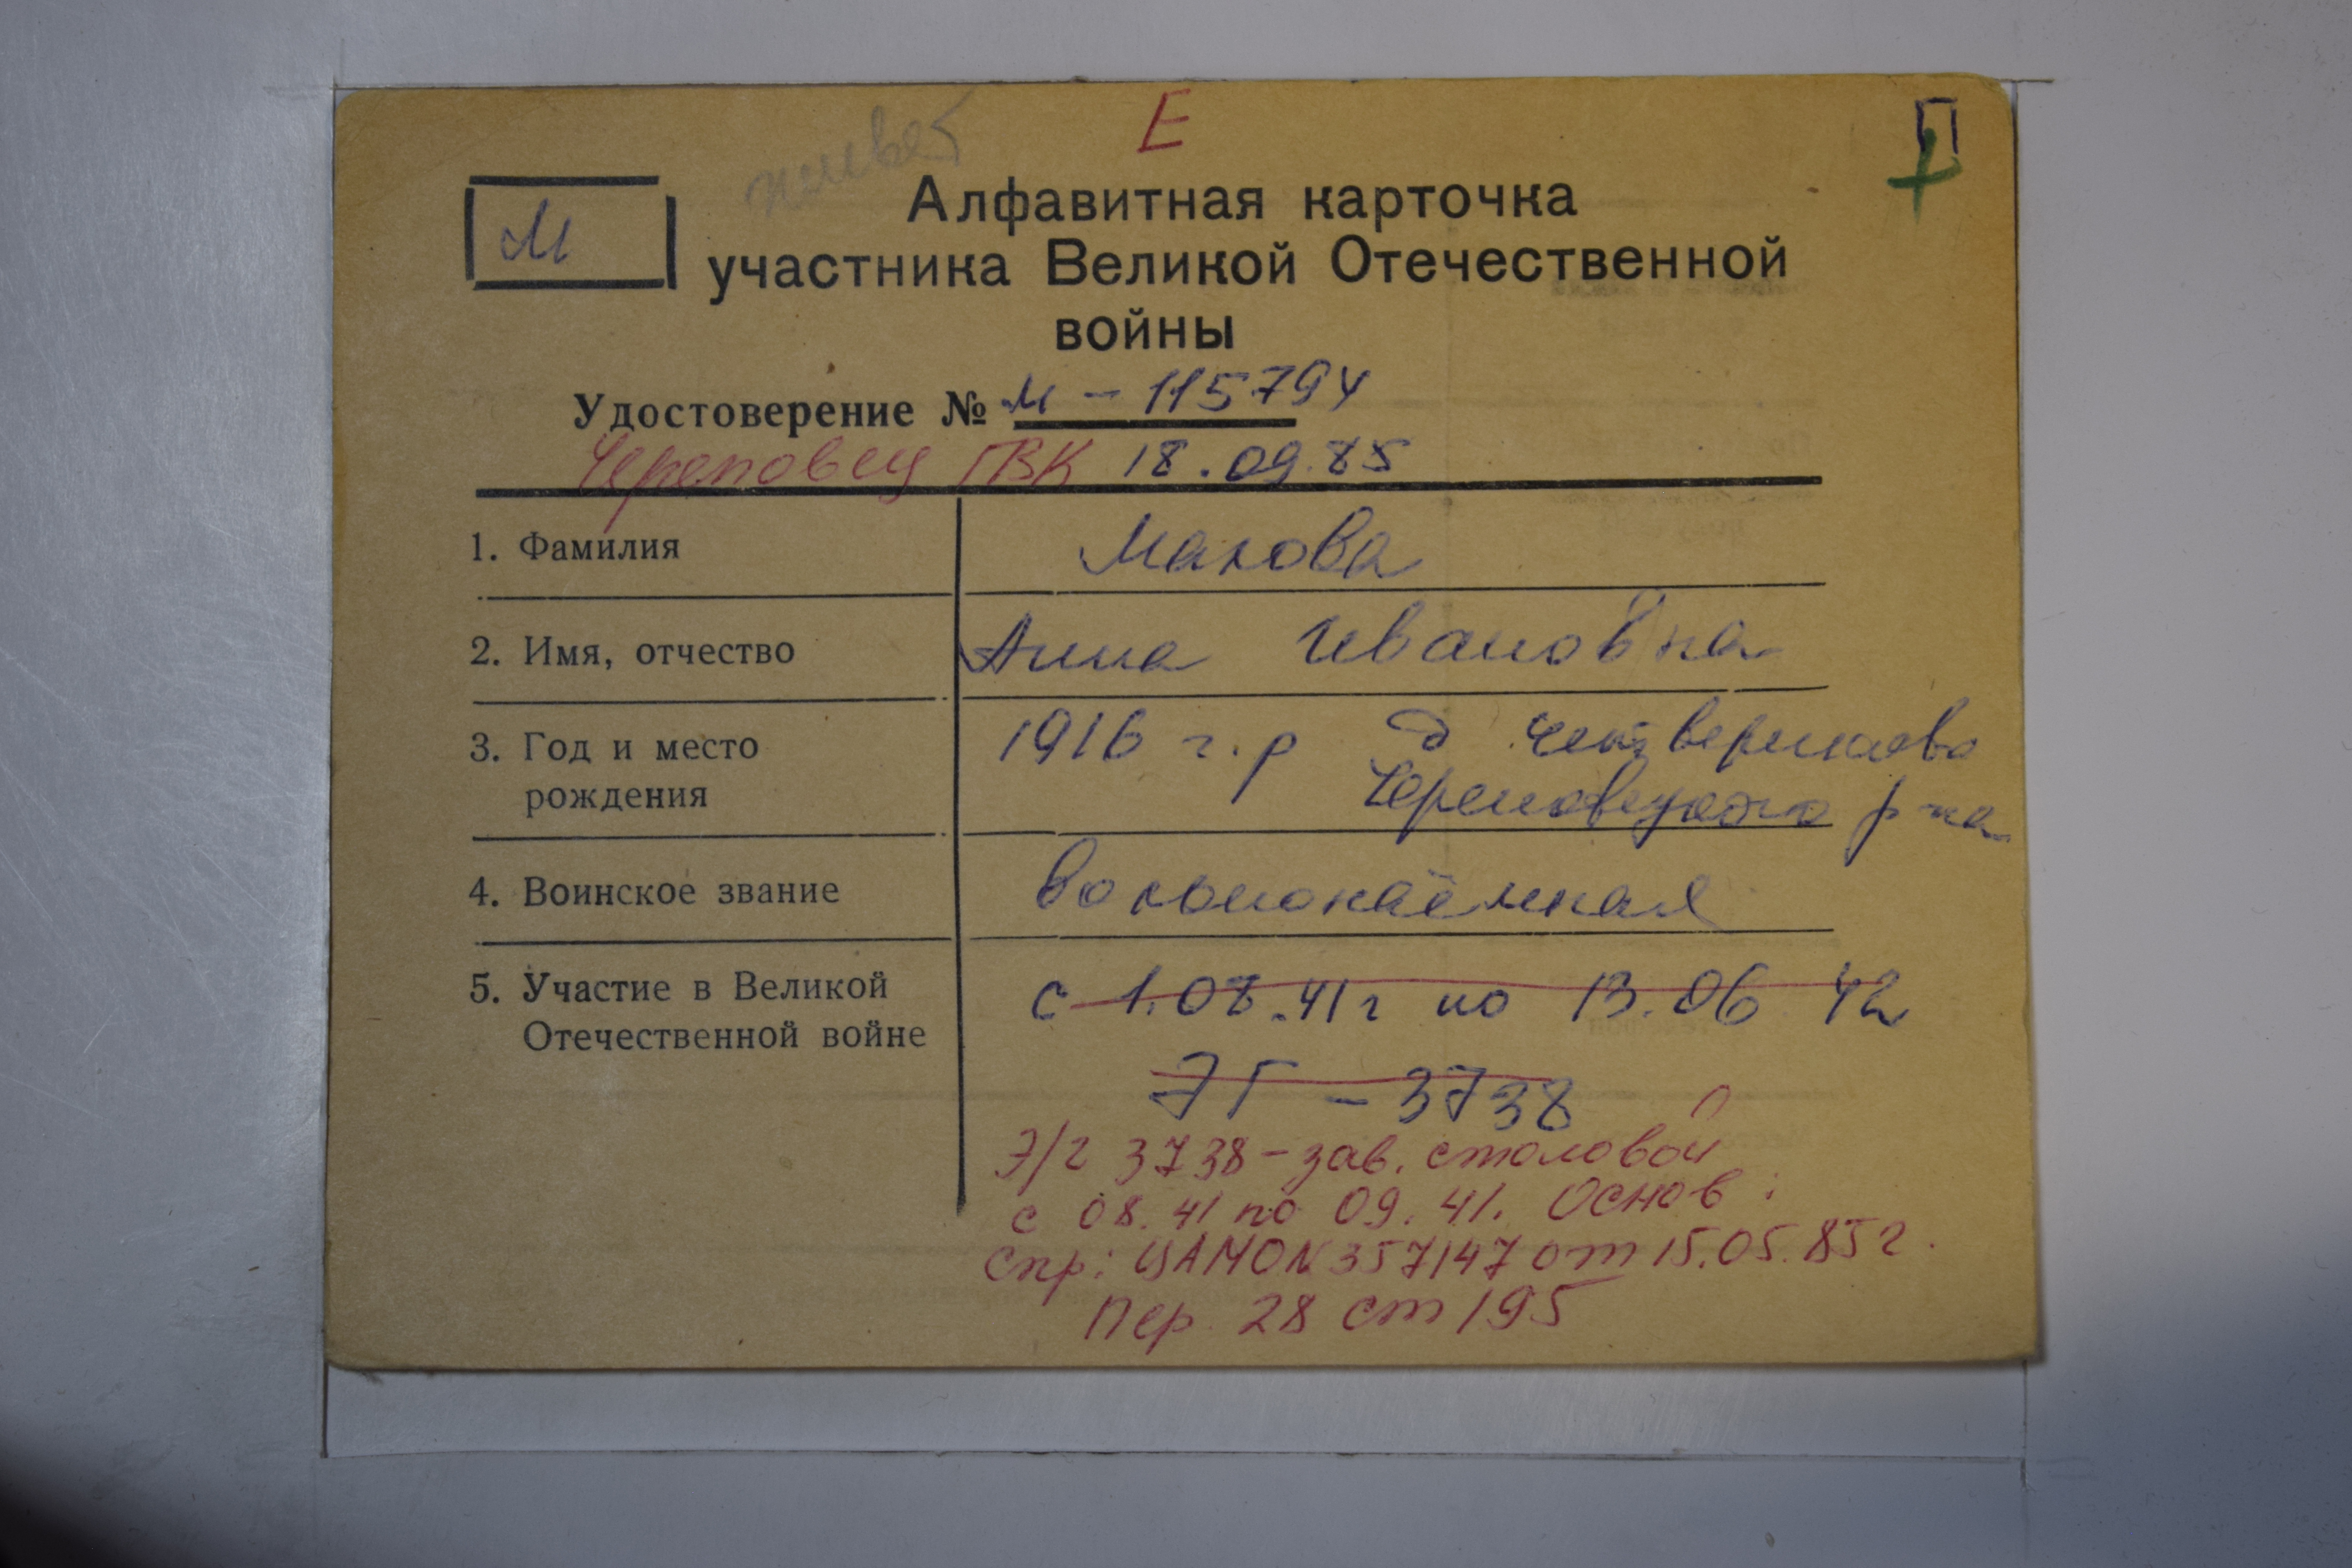 Е
П
М
Алфавитная карточка
участника Великой Отечественной
войны
Удостоверение № М - 115794
Череповец ГВК 18.09.85
1. Фамилия Макова
2. Имя, отчество Анна Ивановна
3. Год и место 1916 г.р д
рождения Череповецкого р-на
4. Воинское звание вольнонаёмная
5. Участие в Великой с 1.08.41г по 13.06 42
Отечественной войне
ЭГ - 3738
Э/г 3738 - зав. столовой
с 08.41 по 09.41. Основ:
Спр: ЦАМО N 357147 от 15.05.85г.
Пер. 28 ст 195